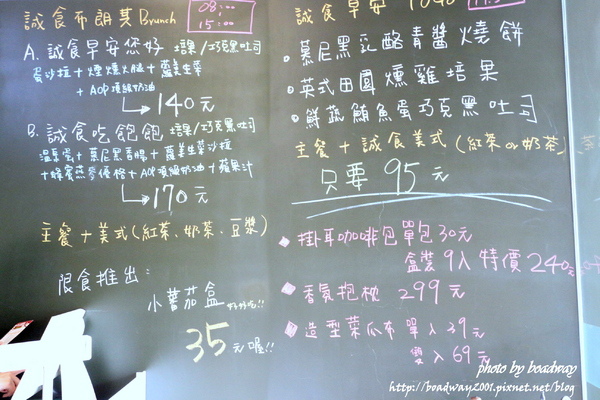 誠食布朗其Brunch
08:00
15:00
A. 誠食早安您好 堤果/巧克黑吐司
蛋沙拉+煙燻火腿+蘿美生菜
+AOP頂級奶油
140元
B. 誠食吃飽飽 堤果/巧克黑吐司
溫泉蛋+慕尼黑香腸+蘿美生菜沙拉
+蜂蜜燕麥優格+AOP頂級奶油+蘋果汁
170元
主餐+美式(紅茶、奶茶、豆漿)
限食推出:
小蕃茄盒 好好吃!!
35元喔!!
誠食早安
慕尼黑乳酪青醬燒餅
英式田園燻雞培果
鮮蔬鮪魚蛋巧克黑吐司
主餐+誠食美式(紅茶or奶茶)
只要 95元
掛耳咖啡包單包30元
盒裝9入特價240元
香氛抱枕 299元
造型菜瓜布 單入39元
雙入69元
photo by boadway
http://boadway2001.pixnet.net/blog